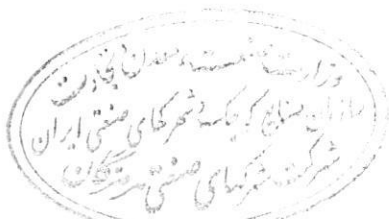 وزارت صنعت، معدن تجارت
سازمان صنایع کوچک و شهرکهای صنعتی ایران
شرکت شهرکهای صنعتی هرمزگان